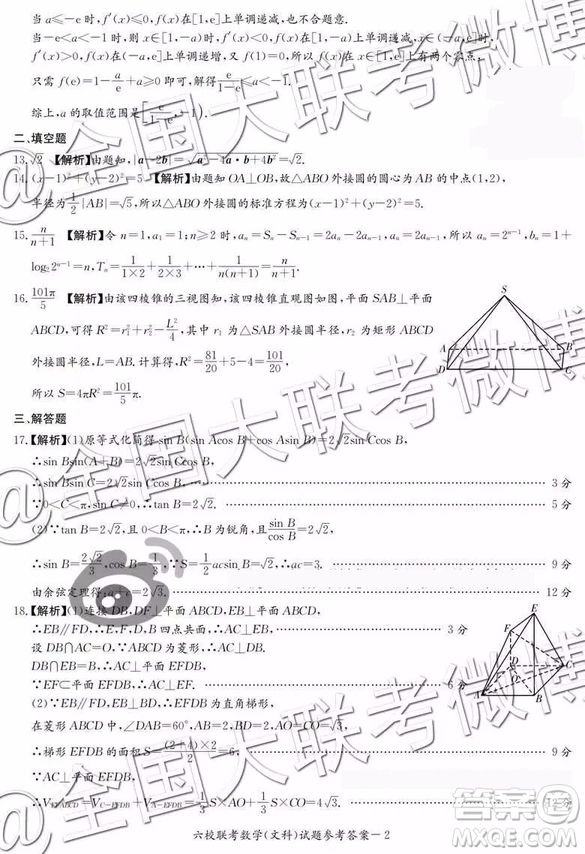 当a≤-e时,f′(x)≤0,f(x)在[1,e]上单调递减,也不合题意.
当-e<a<-1时,则x∈[1,-a)时,f′(x)<0,f(x)在[1,-a)上单调递减,x∈(-a,e]时,
f′(x)>0,f(x)在(-a,e]上单调递增,又f(1)=0,所以f(x)在x∈[1,e]上有两个零点,
只需f(e)=1-a/e+a≥0即可,解得e/(1-e)≤a<-1.
综上,a的取值范围是[e/(1-e),-1).
二、填空题
13.√2 【解析】由题知,|a-2b|=√(a²-4a·b+4b²)=√2.
14.(x-1)²+(y-2)²=5 【解析】由题知OA⊥OB,故△ABO外接圆的圆心为AB的中点(1,2),
半径为1/2|AB|=√5,所以△ABO外接圆的标准方程为(x-1)²+(y-2)²=5.
15.n/(n+1) 【解析】令n=1,a₁=1;n≥2时,aₙ=Sₙ-Sₙ₋₁=2aₙ-2aₙ₋₁,所以aₙ=2ⁿ⁻¹,bₙ=1+
log₂2ⁿ⁻¹=n,Tₙ=1/(1×2)+1/(2×3)+…+1/(n(n+1))=n/(n+1).
16.101π/5 【解析】由该四棱锥的三视图知,该四棱锥直观图如图,平面SAB⊥平面
ABCD,可得R²=r₁²+r₂²-L²/4,其中r₁为△SAB外接圆半径,r₂为矩形ABCD
外接圆半径,L=AB.计算得,R²=81/20+5-4=101/20,
所以S=4πR²=101/5π.
S
A
B
D
C
三、解答题
17.【解析】(1)原等式化简得sin B(sin Acos B+cos Asin B)=2√2sin Ccos B,
∴sin Bsin(A+B)=2√2sin Ccos B,
∴sin Bsin C=2√2sin Ccos B, 3分
∵0<C<π,sin C≠0,∴tan B=2√2. 5分
(2)∵tan B=2√2,且∴B为锐角,且sin B/cos B=2√2,
∴sin B=2√2/3,cos B=1/3,∵S=1/2acsin B=√2, 9分
由余弦定理得:a+c=2√3. 12分
18.【解析】(1)连接DB,DF⊥平面ABCD,EB⊥平面ABCD,
∴EB∥FD,∴E,F,D,B四点共面,∴AC⊥EB, 3分
设DB∩AC=O,∵ABCD为菱形,∴AC⊥DB.
DB∩EB=B,∴AC⊥平面EFDB,
∵EF⊂平面EFDB,∴AC⊥EF. 6分
(2)∵EB∥FD,EB⊥BD,∴EFDB为直角梯形,
在菱形ABCD中,∠DAB=60°,AB=2,BD=2,AO=CO=√3,
∴梯形EFDB的面积S=(2+4)×2/2=6,	9分
∵AC⊥平面EFDB,
∴V_EFABCD=V_C-EFDB+V_A-EFDB=1/3S×AO+1/3S×CO=4√3. 12分
E
F
D
C
O
A
B
六校联考数学(文科)试题参考答案－2
@全国大联考微博
@全国大联考微博
@全国大联考微博
答案圈